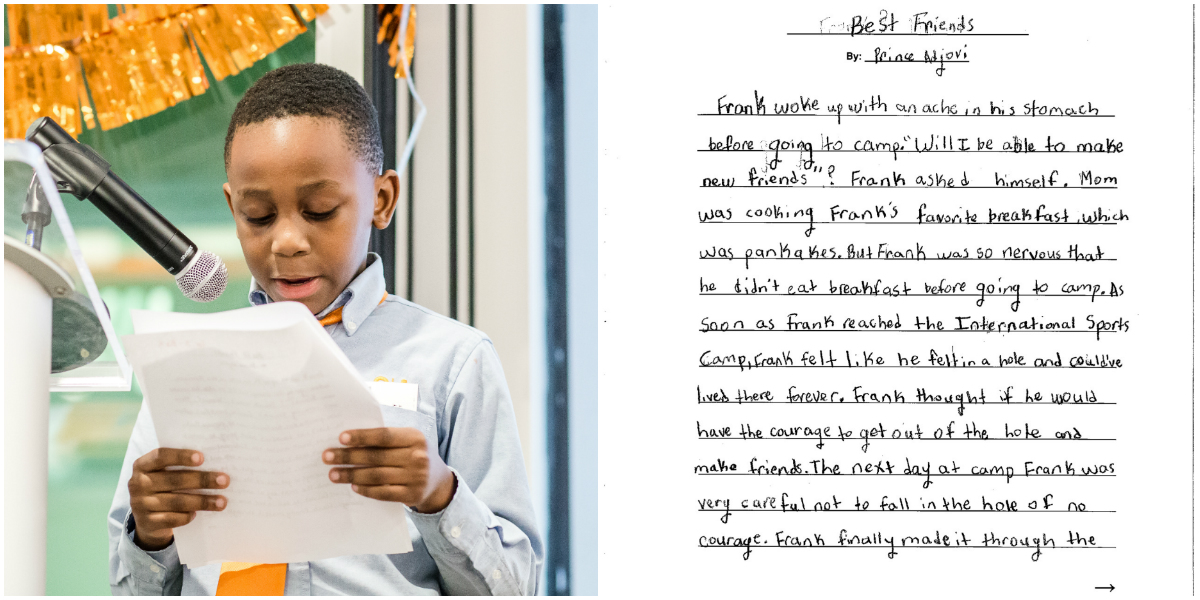 Best Friends
By: Prince Adjovi
Frank woke up with an ache in his stomach
before going to camp. "Will I be able to make
new friends"? Frank asked himself. Mom
was cooking Frank's favorite breakfast, which
was pankakes. But Frank was so nervous that
he didn't eat breakfast before going to camp. As
soon as Frank reached the International Sports
Camp, Frank felt like he felt in a hole and could've
lived there forever. Frank thought if he would
have the courage to get out of the hole and
make friends. The next day at camp Frank was
very careful not to fall in the hole of no
courage. Frank finally made it through the
→